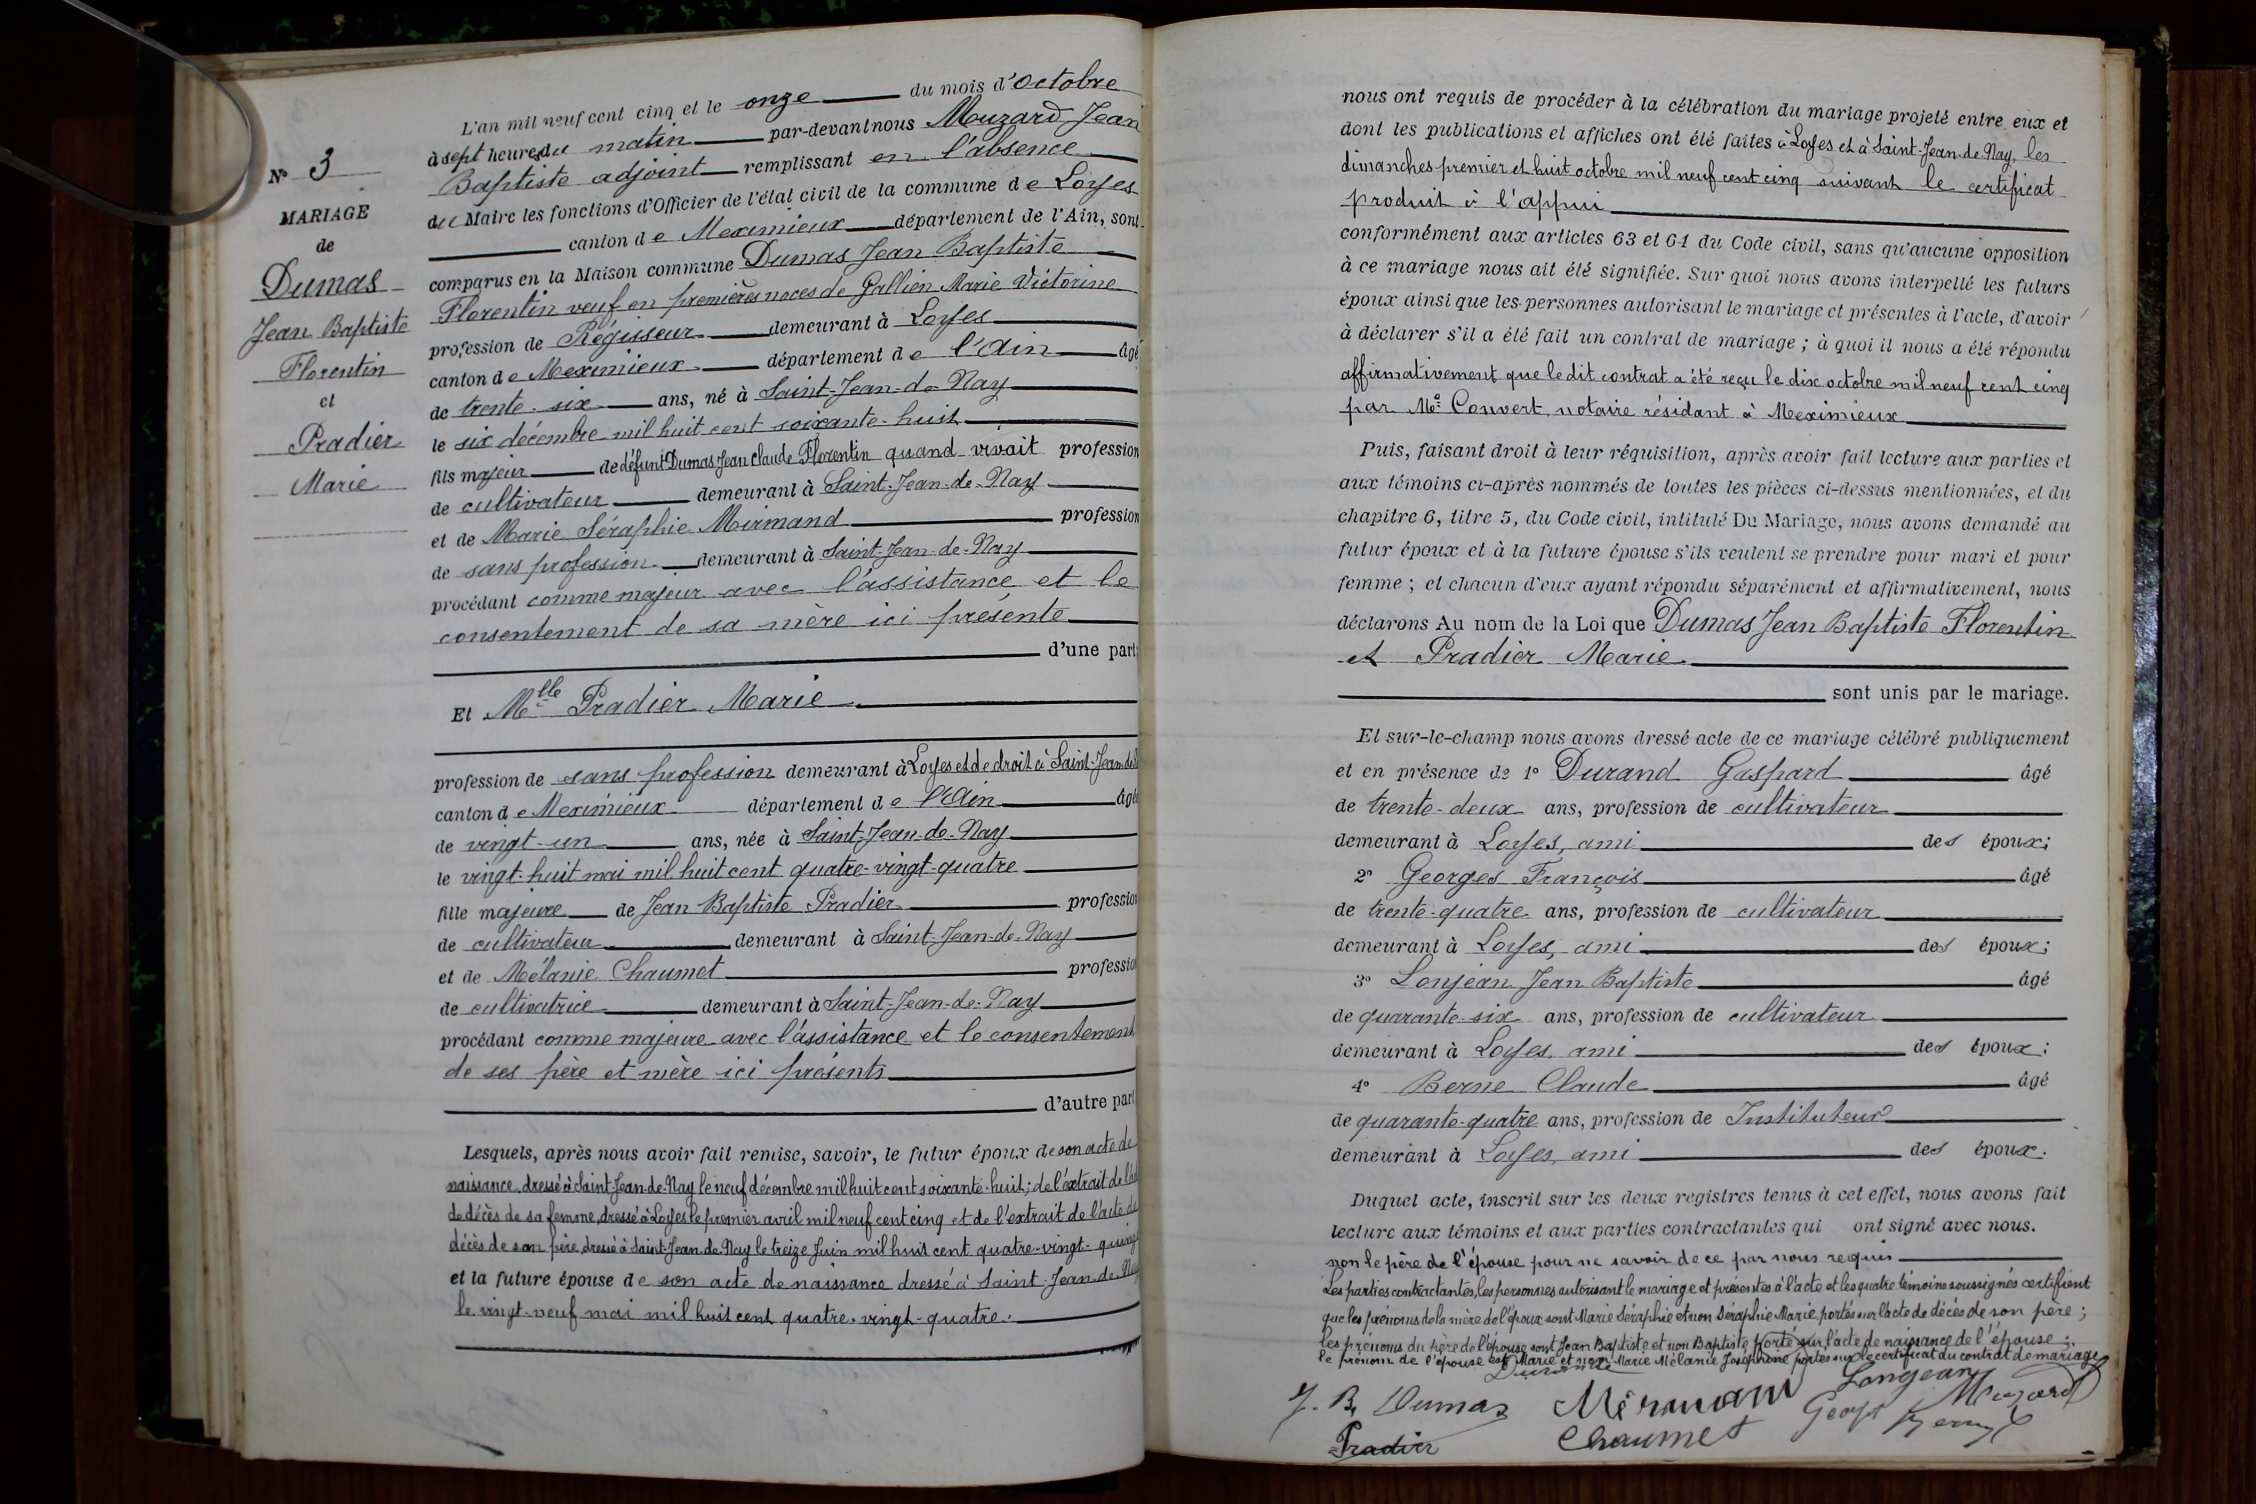 N° 3
MARIAGE
de
Dumas
Jean Baptiste
Florentin
et
Pradier
Marie
L'an mil neuf cent cinq et le onze du mois d'Octobre
à sept heures du matin par-devant nous Mouzard Jean
Baptiste adjoint remplissant en l'absence
du Maire les fonctions d'Officier de l'état civil de la commune de Loyes
canton de Meximieux département de l'Ain, sont
comparus en la Maison commune Dumas Jean Baptiste
Florentin veuf en premières noces de Gallien Marie Victorine
profession de Régisseur demeurant à Loyes
canton de Meximieux département de l'Ain âgé
de trente-six ans, né à Saint-Jean-de-Nay
le six décembre mil huit cent soixante-huit
fils majeur de défunt Dumas Jean Claude Florentin quand vivait profession
de cultivateur demeurant à Saint-Jean-de-Nay
et de Marie Séraphie Mirmand profession
de sans profession demeurant à Saint-Jean-de-Nay
procédant comme majeur avec l'assistance et le
consentement de sa mère ici présente
d'une part
Et Mlle Pradier Marie
profession de sans profession demeurant à Loyes et de droit à Saint-Jean-de
canton de Meximieux département de l'Ain âgé
de vingt-un ans, née à Saint-Jean-de-Nay
le vingt-huit mai mil huit cent quatre-vingt-quatre
fille majeure de Jean Baptiste Pradier profession
de cultivateur demeurant à Saint-Jean-de-Nay
et de Mélanie Chaumet profession
de cultivatrice demeurant à Saint-Jean-de-Nay
procédant comme majeure avec l'assistance et le consentement
de ses père et mère ici présents
d'autre part
Lesquels, après nous avoir fait remise, savoir, le futur époux de son acte de
naissance, dressé à Saint-Jean-de-Nay le neuf décembre mil huit cent soixante-huit; de l'extrait de
de décès de sa femme, dressé à Loyes le premier avril mil neuf cent cinq et de l'extrait de l'acte de
décès de son père, dressé à Saint-Jean-de-Nay le treize Juin mil huit cent quatre-vingt-
et la future épouse de son acte de naissance dressé à Saint-Jean-de-Nay
le vingt-neuf mai mil huit cent quatre-vingt-quatre.
nous ont requis de procéder à la célébration du mariage projeté entre eux et
dont les publications et affiches ont été faites à Loyes et à Saint-Jean-de-Nay, les
dimanches premier et huit octobre mil neuf cent cinq suivant le certificat
produit à l'appui
conformément aux articles 63 et 64 du Code civil, sans qu'aucune opposition
à ce mariage nous ait été signifiée. Sur quoi nous avons interpellé les futurs
époux ainsi que les personnes autorisant le mariage et présentes à l'acte, d'avoir
à déclarer s'il a été fait un contrat de mariage ; à quoi il nous a été répondu
affirmativement que le dit contrat a été reçu le dix octobre mil neuf cent cinq
par Me Convert, notaire résidant à Meximieux
Puis, faisant droit à leur réquisition, après avoir fait lecture aux parties et
aux témoins ci-après nommés de toutes les pièces ci-dessus mentionnées, et du
chapitre 6, titre 5, du Code civil, intitulé Du Mariage, nous avons demandé au
futur époux et à la future épouse s'ils veulent se prendre pour mari et pour
femme ; et chacun d'eux ayant répondu séparément et affirmativement, nous
déclarons Au nom de la Loi que Dumas Jean Baptiste Florentin
et Pradier Marie
sont unis par le mariage.
Et sur-le-champ nous avons dressé acte de ce mariage célébré publiquement
et en présence de 1° Durand Gaspard âgé
de trente-deux ans, profession de cultivateur
demeurant à Loyes, ami des époux;
2° Georges François âgé
de trente-quatre ans, profession de cultivateur
demeurant à Loyes, ami des époux;
3° Lonjean Jean Baptiste âgé
de quarante-six ans, profession de cultivateur
demeurant à Loyes, ami des époux;
4° Berne Claude âgé
de quarante-quatre ans, profession de Instituteur
demeurant à Loyes, ami des époux.
Duquel acte, inscrit sur les deux registres tenus à cet effet, nous avons fait
lecture aux témoins et aux parties contractantes qui ont signé avec nous.
non le père de l'épouse pour ne savoir de ce par nous requis
Les parties contractantes, les personnes autorisant le mariage et présentes à l'acte et les quatre témoins soussignés certifient
que les prénoms de la mère de l'époux sont Marie Séraphie et non Séraphie Marie, portés sur l'acte de décès de son père ;
les prénoms du père de l'épouse sont Jean Baptiste et non Baptiste porté sur l'acte de naissance de l'épouse ;
le prénom de l'épouse est Marie et non Marie Mélanie Joséphine portés sur le certificat du contrat de mariage
Durand
Lonjean
J. B. Dumas Mirmand Georges Mouzard
Pradier Chaumet Berne